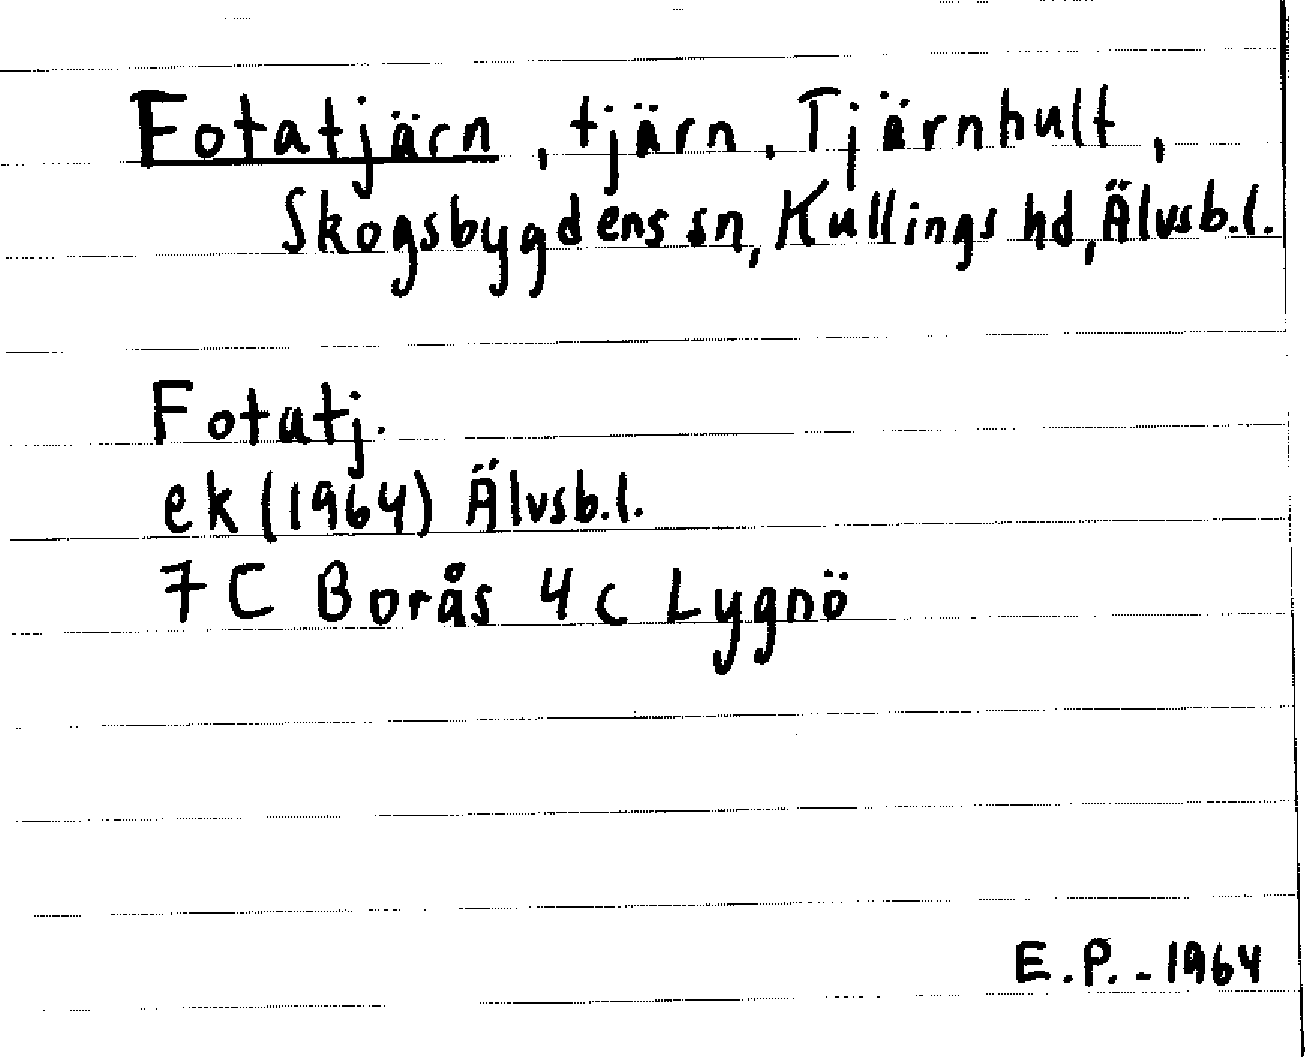 Fotatjärn, tjärn, Tjärnhult,
Skogsbygdens sn, Kullings hd, Älvsb.l.
Fotatj.
ek (1964) Älvsb.l.
7 C Borås 4 c Lygnö
E.P. - 1964